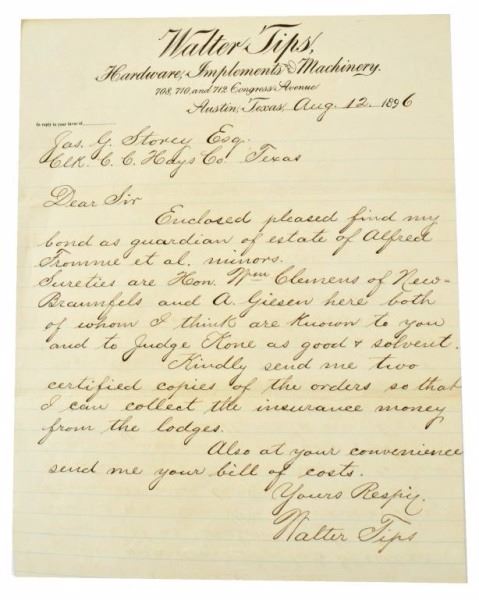 Walter Tips,
Hardware, Implements & Machinery.
708, 710, and 712 Congress Avenue
Austin, Texas, Aug. 12. 1896
In reply to your favor of
Jas. G. Storey Esq.
Clk. C. C. Hays Co. Texas
Dear Sir
Enclosed pleased find my
bond as guardian of estate of Alfred
Fromme et al. minors.
Sureties are Hon. Wm Clemens of New-
Braunfels and A. Giesen here both
of whom I think are known to you
and to Judge Kone as good & solvent.
Kindly send me two
certified copies of the orders so that
I can collect the insurance money
from the lodges.
Also at your convenience
send me your bill of costs.
Yours Respy.
Walter Tips